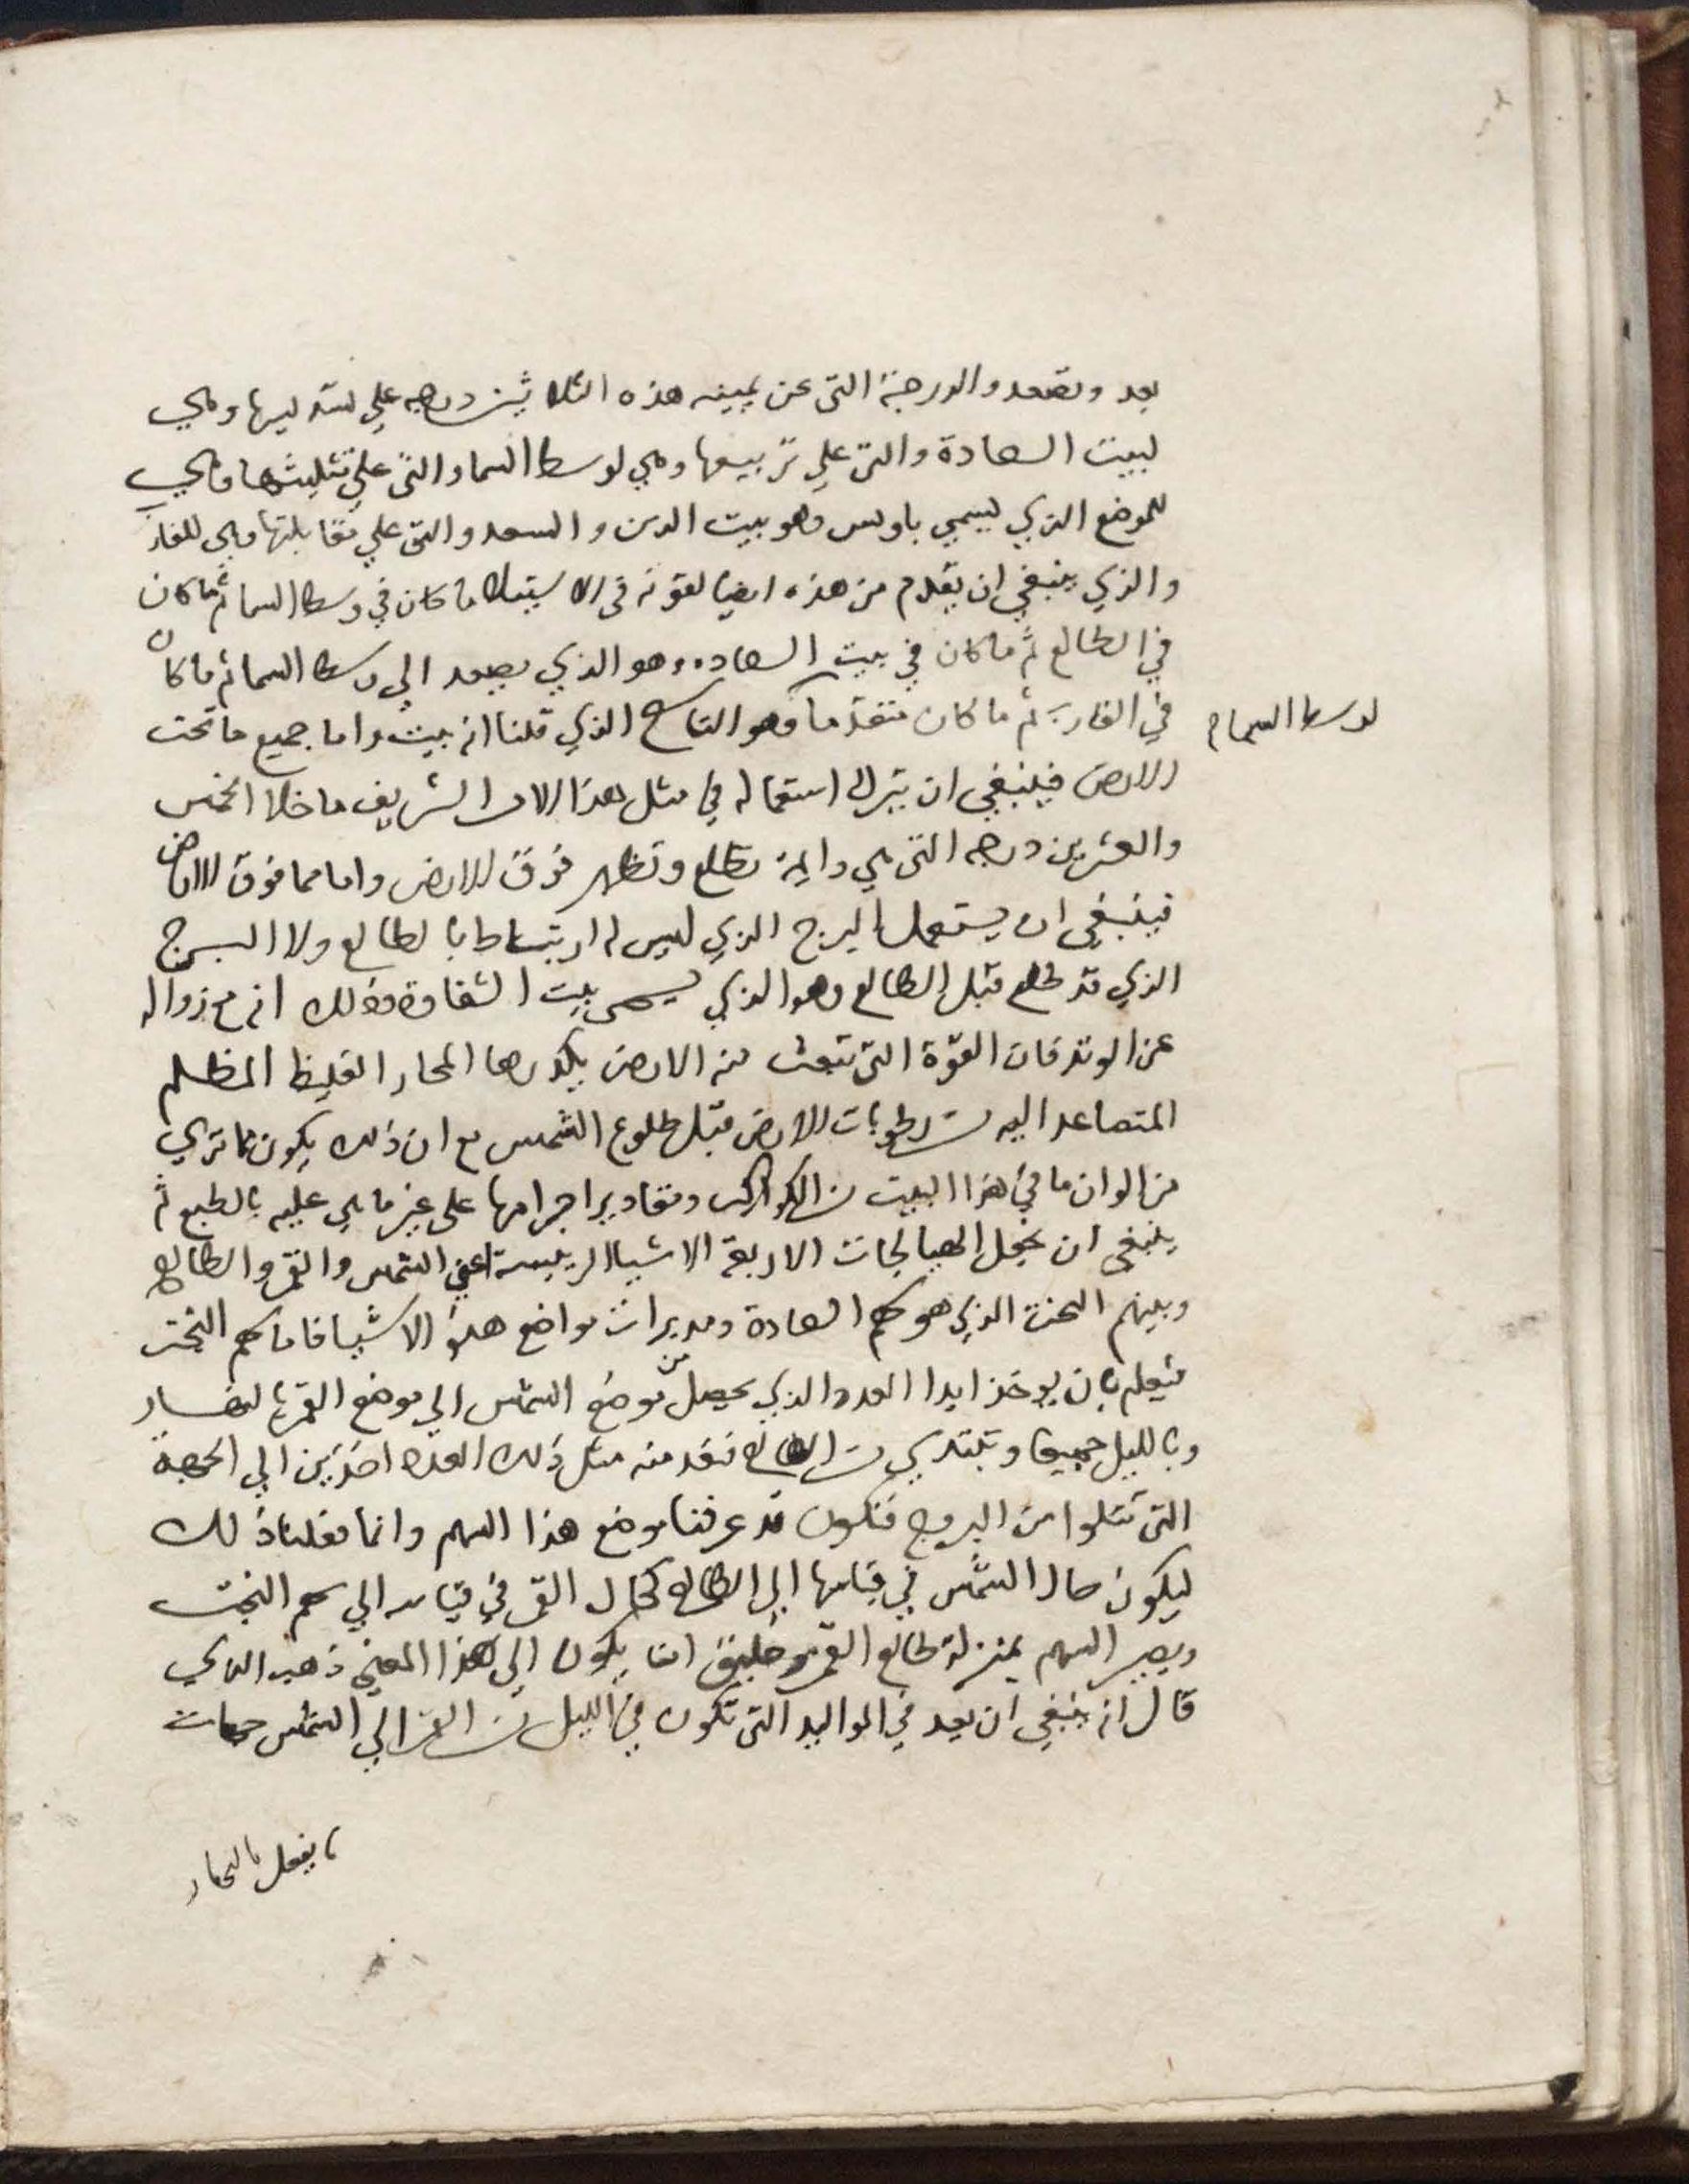 بعد وتصعد والدرجة التى عن يمينه هذه الثلاثين درجه علي تسديسها وهي
لبيت السعادة والتى علي تربيعها وهي لوسط السما والتى علي تثليثها وهي
للموضع الذي يسمي باويس وهو بيت الدين والسعد والتى علي مقابلتها وهي للغارب
والذي ينبغي ان يقدم من هذه ايضا لقوته فى الاستيلا ما كان في وسط السما ثم ما كان
في الطالع ثم ما كان في بيت السعاده وهو الذي يصعد الى وسط السما ثم ما كان
في الغارب ثم ما كان متقدما وهو التاسع الذي قلنا انه بيت واما جميع ما تحت
لوسط السما
الارض فينبغي ان يترك استعماله في مثل هذا الامر الشريف ما خلا الخمس
والعشرين درجه التى هي دايمة تطلع وتظهر فوق الارض واما مما فوق الارض
فينبغي ان يستعمل البرج الذي ليس له ارتباط بالطالع ولا البرج
الذي قد طلع قبل الطالع وهو الذي يسمى بيت الشقاوة وذلك انه مع زواله
عن الوتد فان القوة التى تنبعث منه الارض يكدرها البخار الغليظ المظلم
المتصاعد اليه من رطوبات الارض قبل طلوع الشمس مع ان ذلك يكون بما تري
من الوان ما في هذا البيت من الكواكب ومقادير اجرامها على غير ما هي عليه بالطبع ثم
ينبغى ان نجعل الهيالجات الاربعة الاشيا الرييسة اعني الشمس والقمر والطالع
وسهم البخت الذي هو سهم السعادة ومديرات مواضع هذه الاشيا فاما سهم البخت
فيعلم بان يوخذ ابدا العدد الذي يحصل من موضع الشمس الي موضع القمر بالنهار
وبالليل جميعا ونبتدي من الطالع فنعد منه مثل ذلك العدد اخذين الي الجهة
التى تتلوا من البروج فنكون قد عرفنا موضع هذا السهم وانما فعلنا ذلك
ليكون حال الشمس في قياسها الي الطالع كحال القمر في قياسه الي سهم البخت
ويصير السهم بمنزلة طالع القمر وخليق انما يكون الي هذا المعني ذهب الذي
قال انه ينبغي ان يعد في المواليد التى تكون في الليل من القمر الي الشمس حسبان
ما يفعل بالنهار